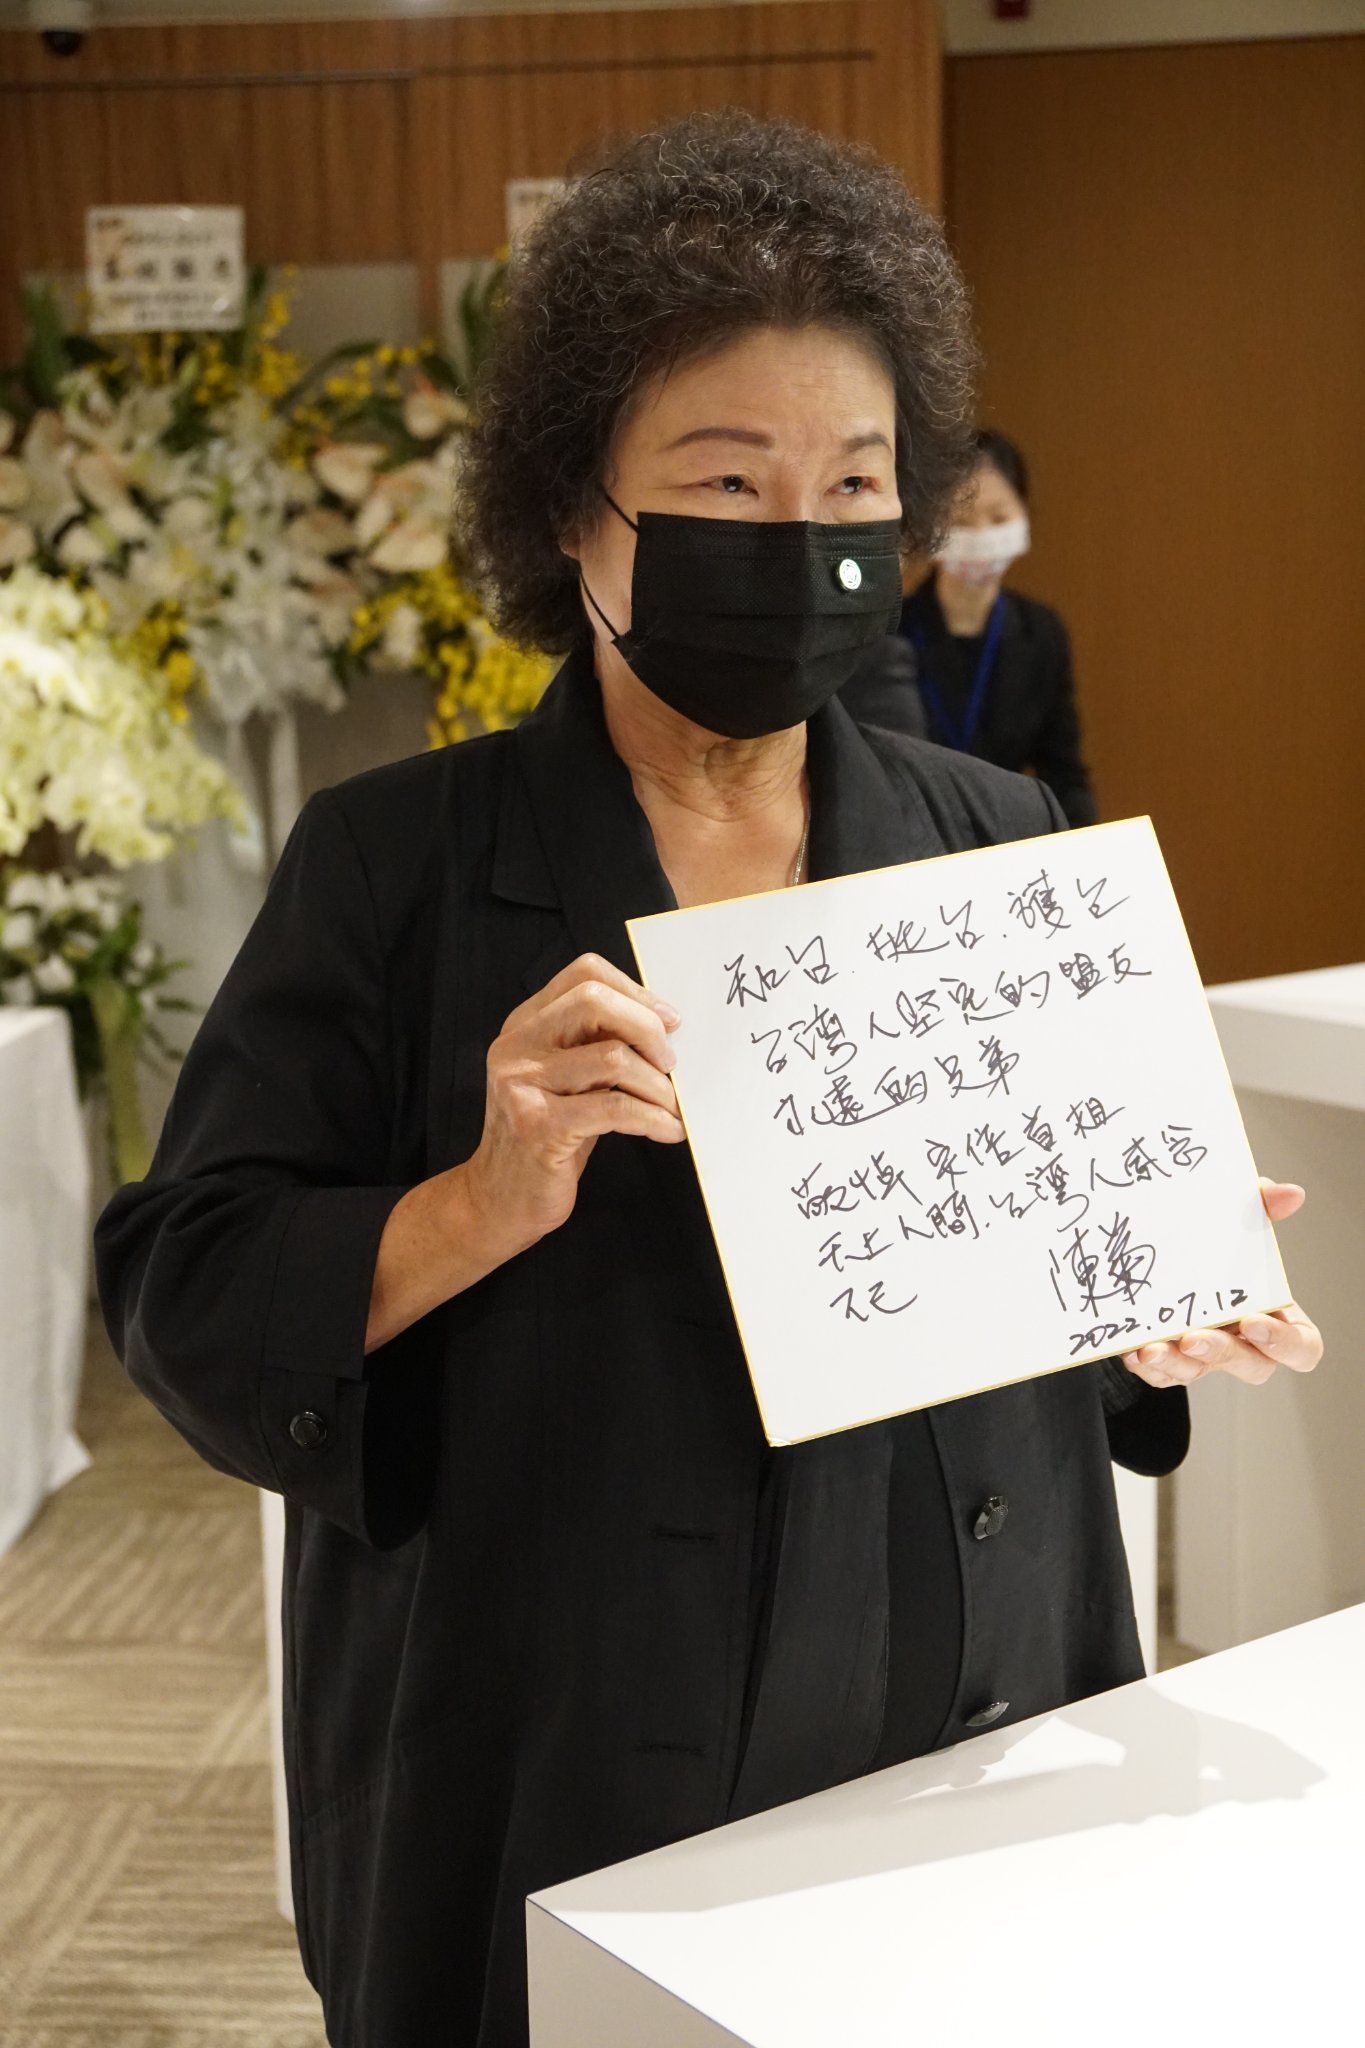 知台.挺台.護台
台湾人坚定的盟友
永遠的兄弟
敬悼安倍首相
天上人間.台灣人感念
不已
陳菊
2022.07.12